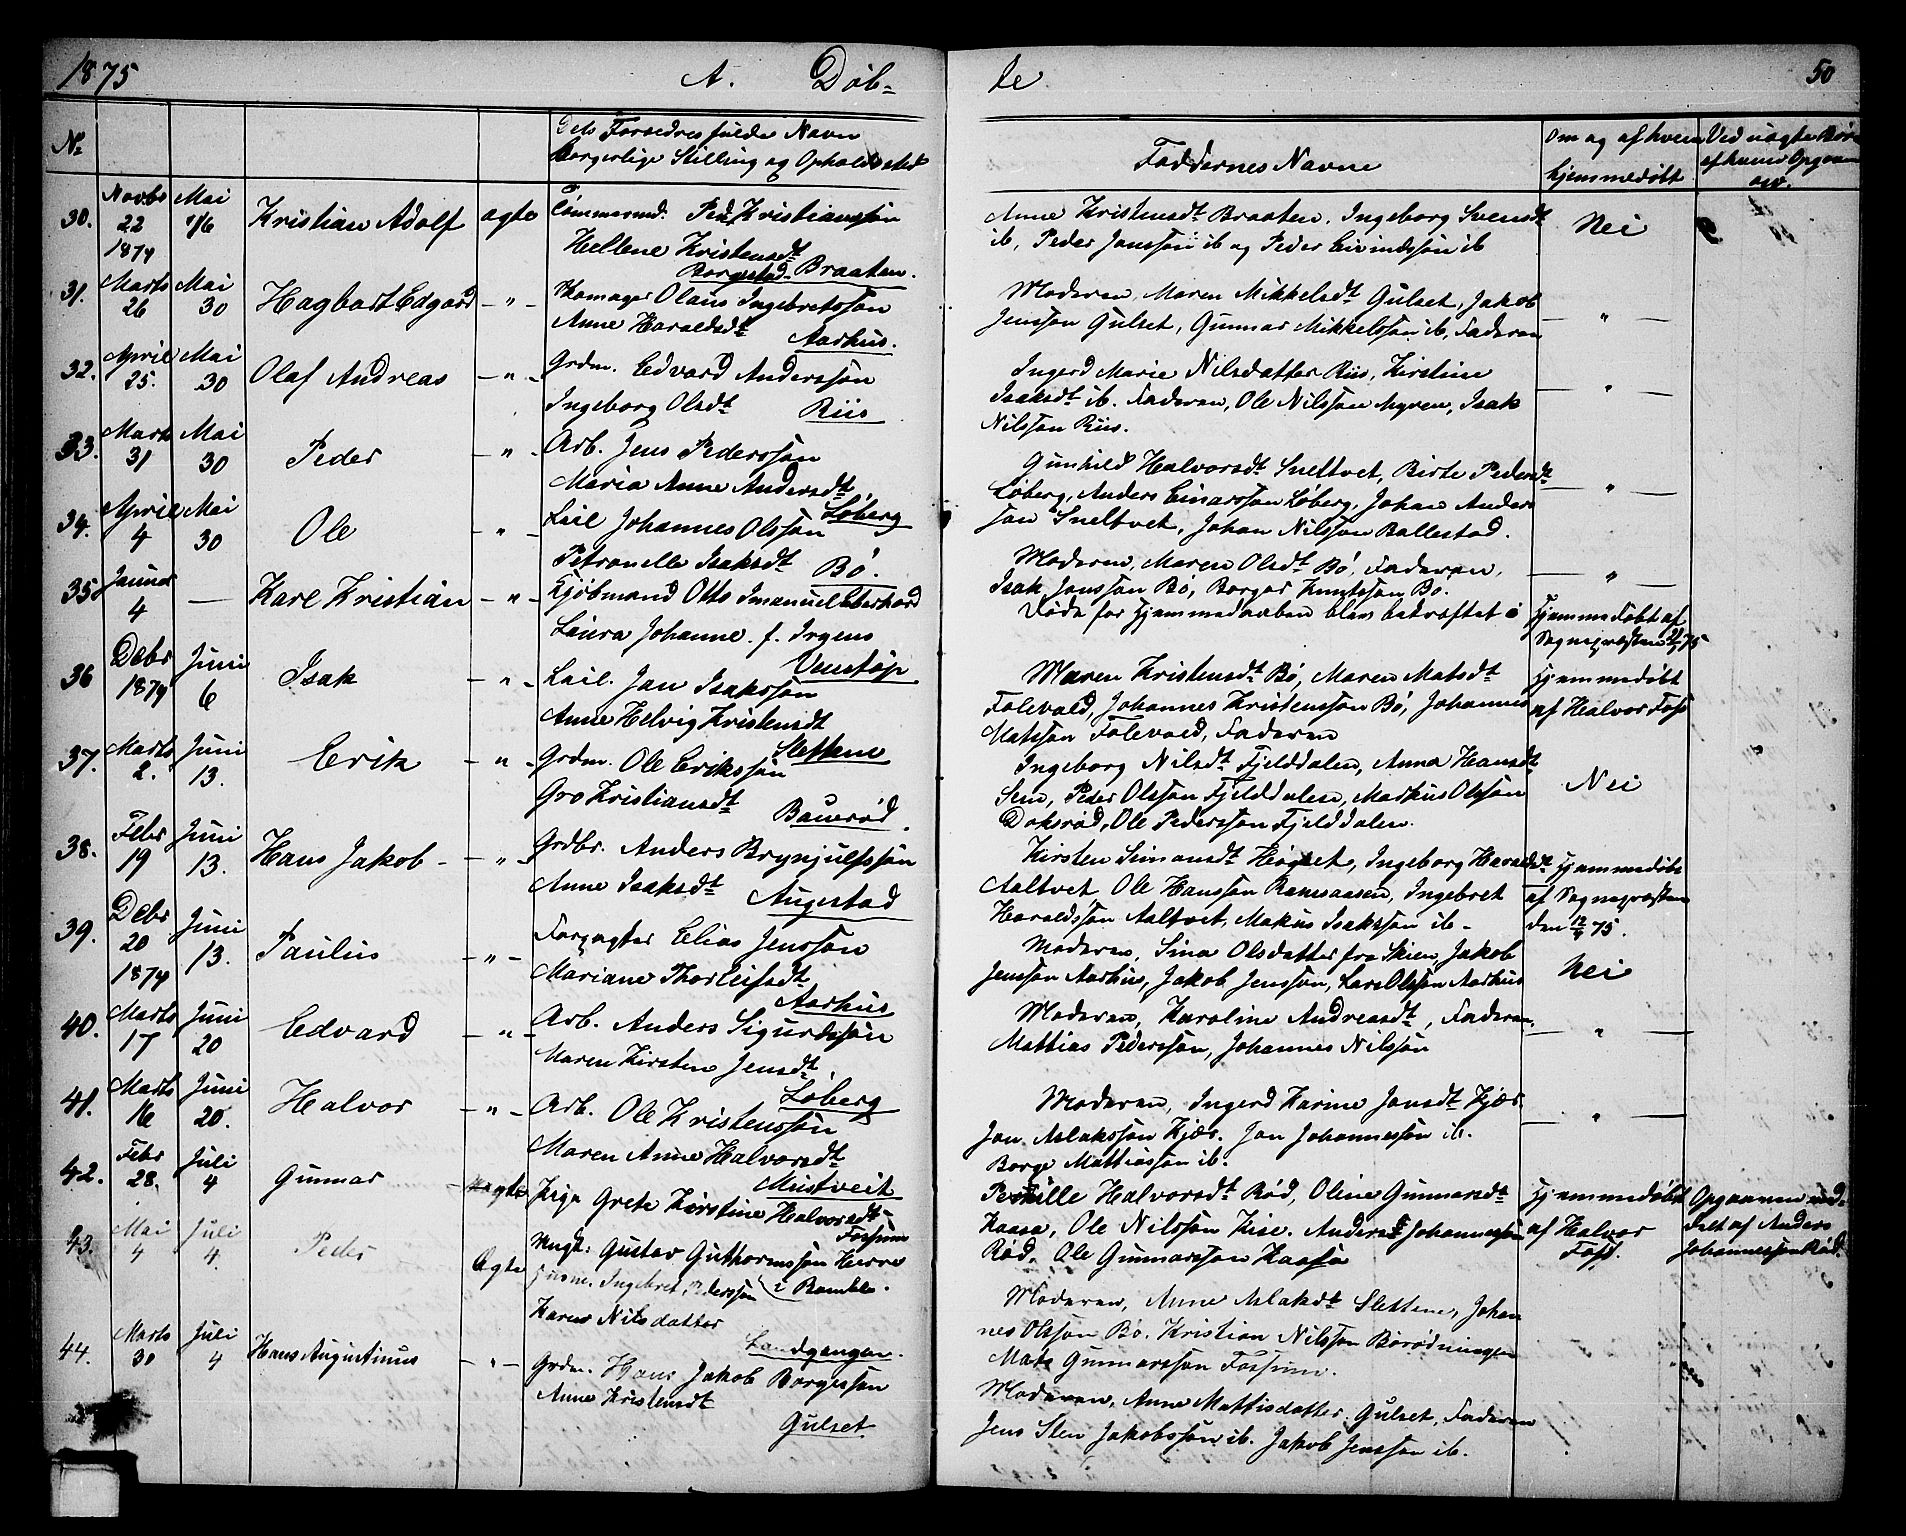 1875 A. Døb= te 50
No
Dets Forældres fulde Navn
Borgerlige Stilling og Opholdssted
Faddernes Navne
Om og af hvem
hjemmedøbt
Ved uægte Børn
af hvem Opgaven
osv.
30. Novbr 22 1874 Mai 16 Kristian Adolf ægte Tømmermd. Peder Kristianssøn
Hellene Kristensdt
Borgestad Braaten.
Anne Kristensdt Braaten, Ingeborg Svensdt
ib, Peder Janssøn ib og Peder Eivindssøn ib
Nei
31. Marts 26 Mai 30 Hagbart Edgard - " - Skomager Olaus Ingebretssøn
Anne Haraldsdt Aarhus.
Moderen, Maren Mikkelsdt Gulset, Jakob
Jenssøn Gulset, Gunnar Mikkelssøn ib, Faderen
- " -
32. April 25. Mai 30 Olaf Andreas - " - Grdm. Edvard Anderssøn
Ingeborg Olsdt Riis
Ingerd Marie Nilsdatter Riis, Kirstine
Isaksdt ib. Faderen, Ole Nilssøn Myren, Isak
Nilssøn Riis.
- " -
33. Marts 31 Mai 30 Peder - " - Arb. Jens Pederssøn
Maria Anne Andersdt.
Løberg
Gunhild Halvorsdt Sneltvet, Birte Pedersdt
Løberg, Anders Einarssøn Løberg, Johan Anders
søn Sneltvet, Johan Nilssøn Ballestad.
- " -
34. April 4 Mai 30 Ole - " - Leil Johannes Olssøn
Petronelle Isaksdt Bø.
Moderen, Maren Olsdt Bø, Faderen,
Isak Janssøn Bø, Borger Knutssøn Bø.
- " -
35 Januar 4 — Karl Kristian - " - Kjøbmand Otto Imanuel Eberhard
Laura Johanne f. Irgens
Venstøp
Døde før Hjemmedaaben blev bekræftet i
Hjemmedøbt af
Sognepræsten 75
36 Debr 1874 Juni 6 Isak - " - Leil. Jan Isakssøn
Anne Helvig Kristensdt
Slettene
Maren Kristensdt Bø, Maren Matsdt
Folevald, Johannes Kristenssøn Bø, Johannes
Matssøn Folevald, Faderen
Hjemmedøbt
af Halvor Foss
37. Marts 2. Juni 13. Erik - " - Grdm. Ole Erikssøn
Gro Kristiansdt
Bauerød.
Ingeborg Nilsdt Fjelddalen, Anna Hansdt
Sem, Peder Olssøn Fjelddalen, Markus Olssøn
Doksrød, Ole Pederssøn Fjelddalen.
Nei
38. Febr 19 Juni 13. Hans Jakob - " - Grdbr. Anders Brynjulfssøn
Anne Isaksdt
Augestad
Kirsten Simonsdt Høgset, Ingeborg Haraldsdt
Aaltvet Ole Hanssøn Ramsaasen, Ingebret
Haraldssøn Aaltvet, Makus Isakssøn ib -
Hjemmedøbt
af Sognepræsten
den 12/4 75.
39. Debr 20 1874 Juni 13. Paulus - " - Forpagter Elias Jenssøn
Mariane Thorleifsdt
Aarhus
Moderen, Sina Olsdatter fra Skien, Jakob
Jenssøn Aarhus, Jakob Jenssøn, Lars Olssøn Aarhus
Nei
40. Marts 17 Juni 20 Edvard - " - Arb. Anders Sigurdssøn
Maren Kirsten Jensdt.
Løberg
Moderen, Karoline Andreasdt, Faderen,
Mattias Pederssøn, Johannes Nilssøn
- " -
41. Marts 16 Juni 20. Halvor - " - Arb. Ole Kristenssøn
Maren Anne Halvorsdt
Mustveit
Moderen, Ingerd Karine Jansdt Kjær.
Jan Aslakssøn Kjær. Jan Johannessøn ib.
Borge Mattiassøn ib.
- " -
42. Febr 28. Juli 4 Gunnar uægte Pige Grete Kirstine Halvorsdt
Fossum
Ungk: Gustav Guthormssøn Herre
i Bamble.
Pernille Halvorsdt Rød, Oline Gunnarsdt
Kaasa, Ole Nilssøn Kise. Anders Johannessøn
Rød, Ole Gunnarssøn Kaasa
Hjemmedøbt
af Halvor
Foss.
Opgaven med-
delt af Anders
Johannessøn Rød.
43. Mai 4 Juli 4. Peder Ægte Ingebret Pederssøn
Karen Nilsdatter
Landgangen.
Moderen, Anne Aslaksdt Slettene, Johan
nes Olssøn Bø. Kristian Nilssøn Børødningen
Mats Gunnarssøn Fossum.
44. Marts 30 Juli 4 Hans Augustinus - " - Grdm. Hans Jakob Borgessøn
Anne Kristensdt
Gulset
Moderen, Anne Mattisdatter Gulset, Faderen
Jens Sten Jakobssøn ib. Jakob Jenssøn ib.